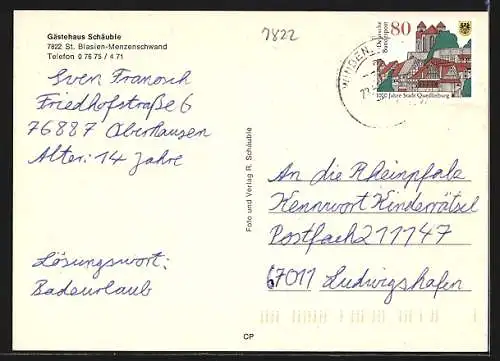 Gästehaus Schäuble
7822 St. Blasien-Menzenschwand
Telefon 0 76 75 / 4 71
7822
Sven Franosch
Friedhofstraße 6
76887 Oberhausen
Alter: 14 Jahre
Lösungswort:
Badeurlaub
Foto und Verlag R. Schäuble
CP
Deutsche
Bundespost
80
1000 Jahre Stadt Quedlinburg
WINDEN
An die Rheinpfalz
Kennwort Kinderrätsel
Postfach 211147
67011 Ludwigshafen